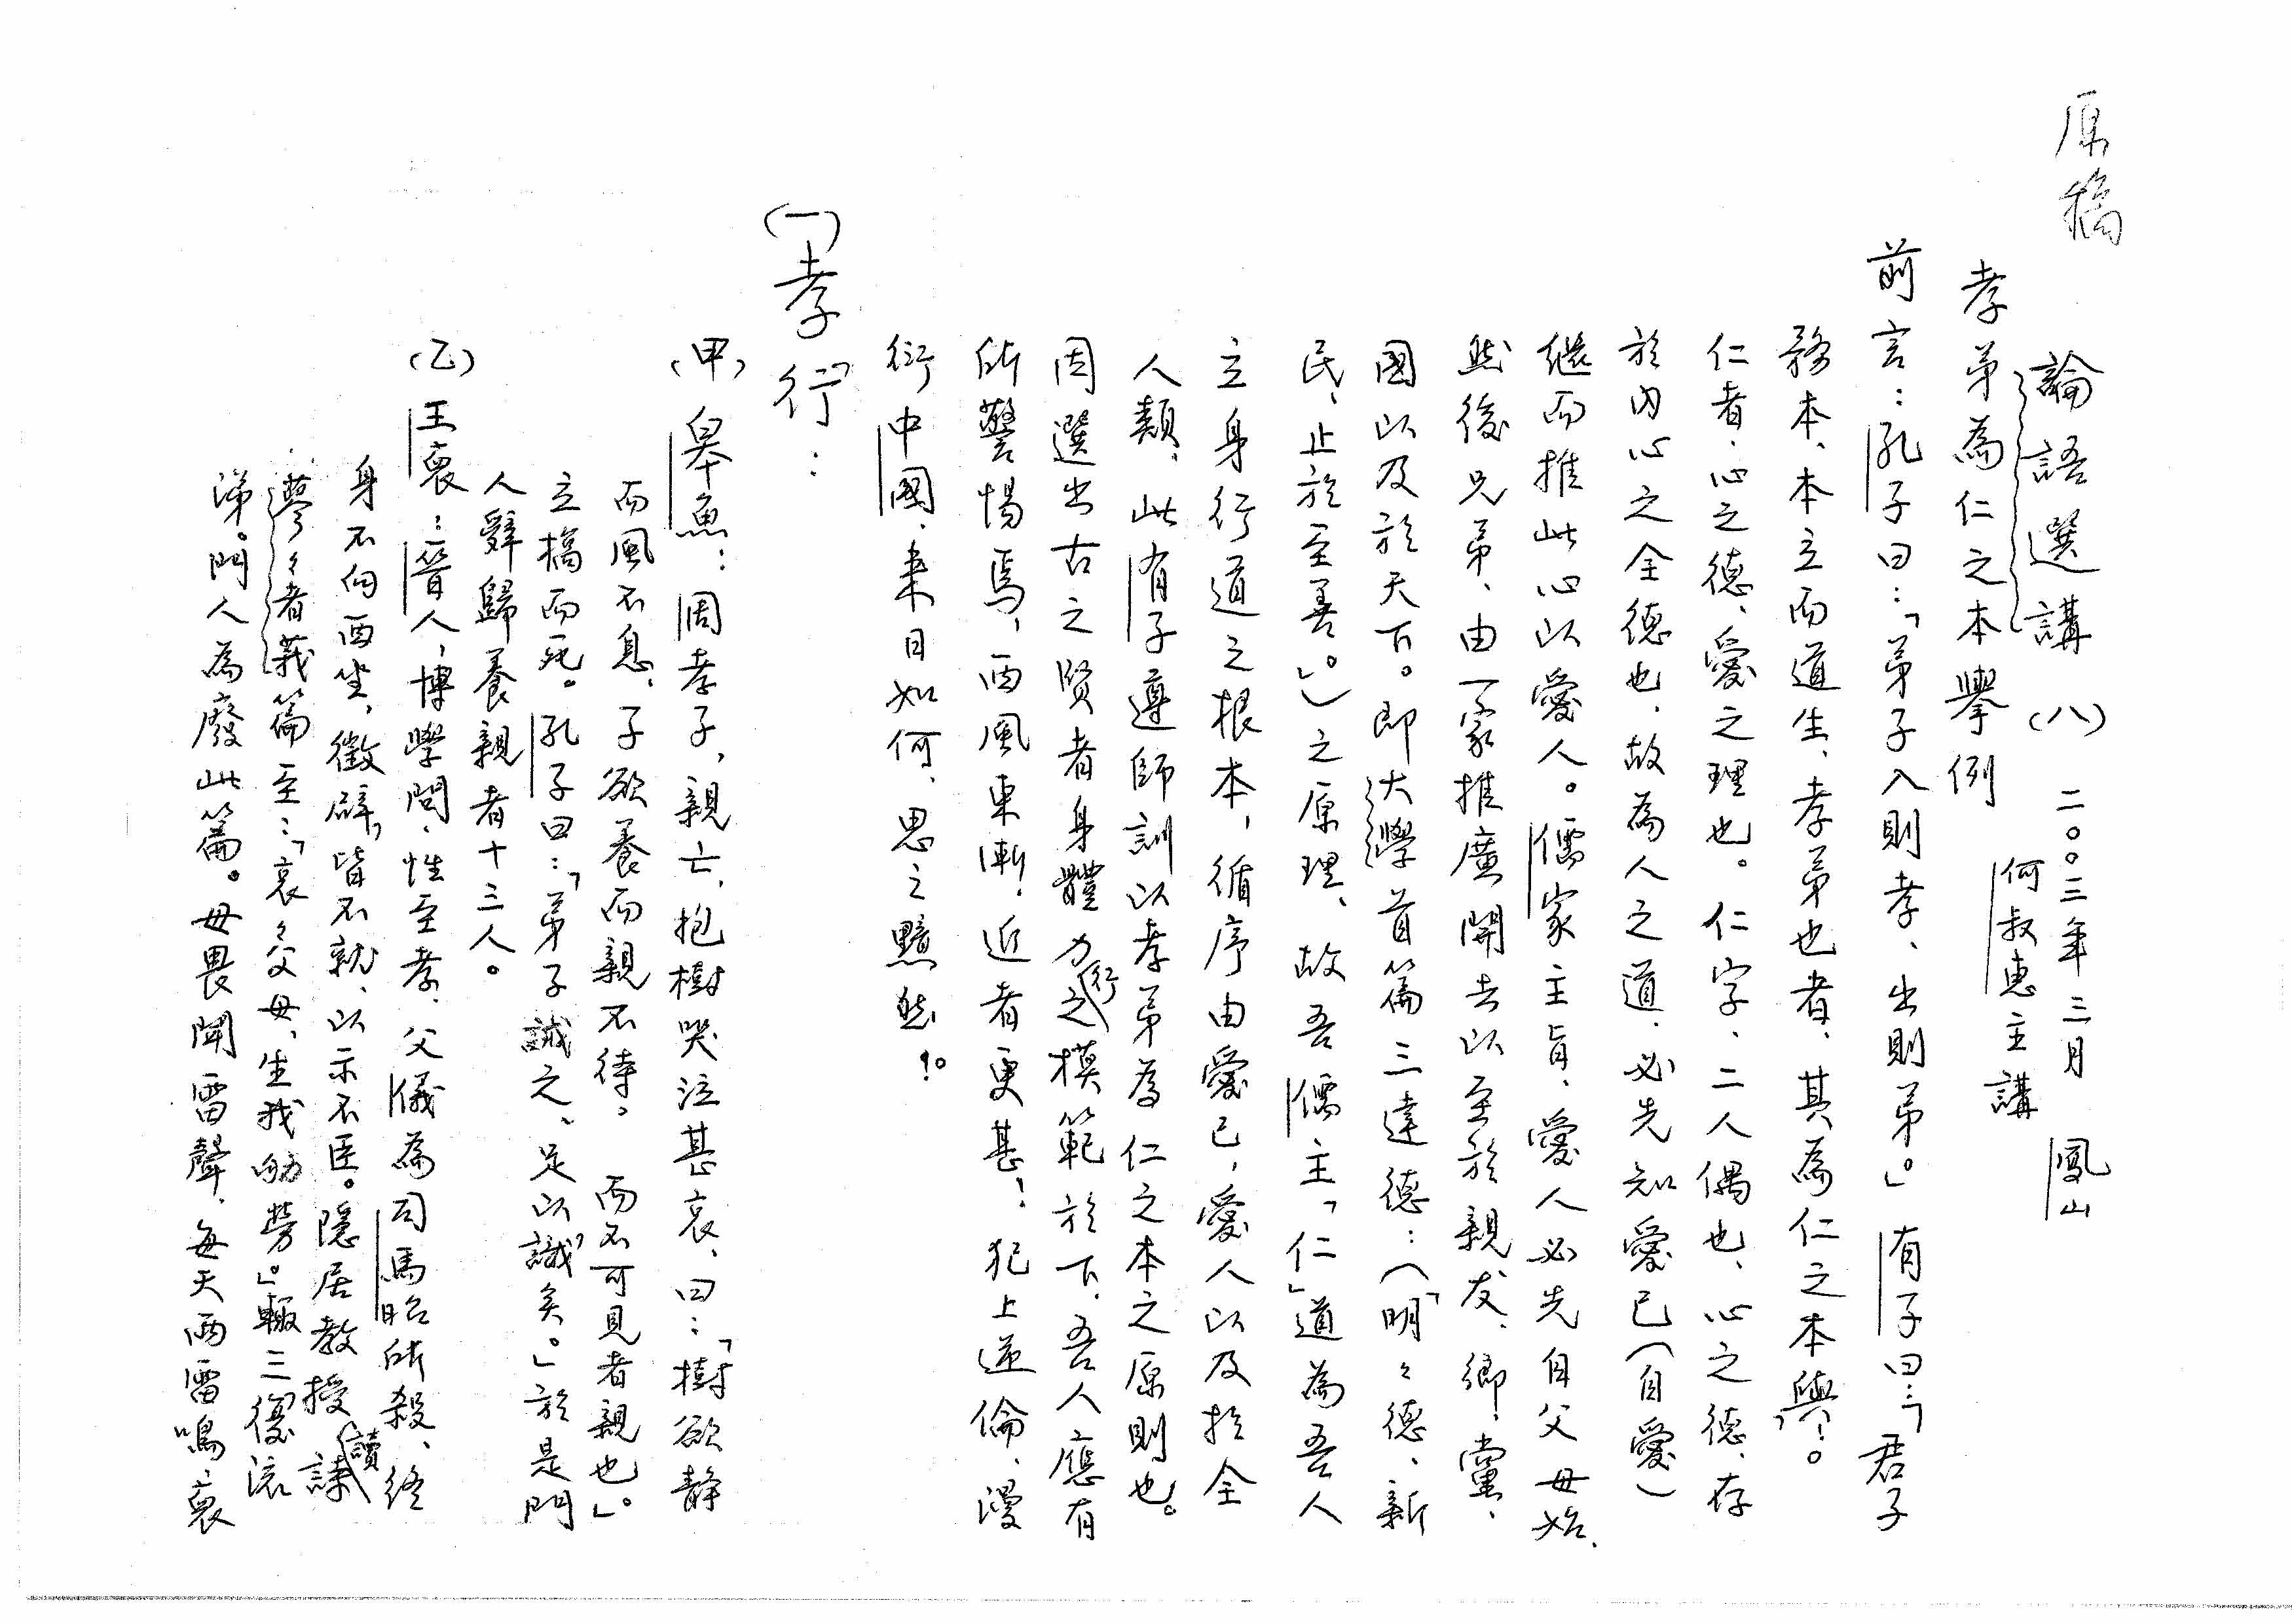 原稿
論語選講(八) 二○○三年三月 鳳山
孝弟為仁之本舉例 何叔惠主講
前言:孔子曰:「弟子入則孝、出則弟。」有子曰:「君子
務本、本立而道生、孝弟也者、其為仁之本與!」。
仁者、心之德、愛之理也。仁字、二人偶也、心之德、存
於內心之全德也、故為人之道、必先知愛己(自愛)
繼而推此心以愛人。儒家主旨、愛人必先自父母始、
然後兄弟、由一家推廣開去以至於親友、鄉、黨、
國以及於天下。即大學首篇三達德:(「明々德、新
民、止於至善。」)之原理、故吾儒主「仁」道為吾人
立身行道之根本,循序由愛己,愛人以及於全
人類、此有子遵師訓以孝弟為仁之本之原則也。
因選出古之賢者身體力行之模範於下、吾人應有
所警惕焉,西風東漸!近者更甚!犯上逆倫、漫
衍中國、來日如何、思之黯然!。
(一)孝行:
(甲)皋魚:周孝子,親亡、抱樹哭泣甚哀、曰:「樹欲靜
而風不息、子欲養而親不待。而不可見者親也」。
立槁而死。孔子曰:「弟子誡之、足以識矣。」於是門
人辭歸養親者十三人。
(乙)王裒:晉人,博學問、性至孝、父儀為司馬昭所殺、終
身不向西坐,徵辟,皆不就、以示不臣。隱居教授、讀
蓼々者莪篇至:「哀々父母、生我劬勞。」輙三復流
涕。門人為廢此篇。母畏聞雷聲、每天雨雷鳴、裒